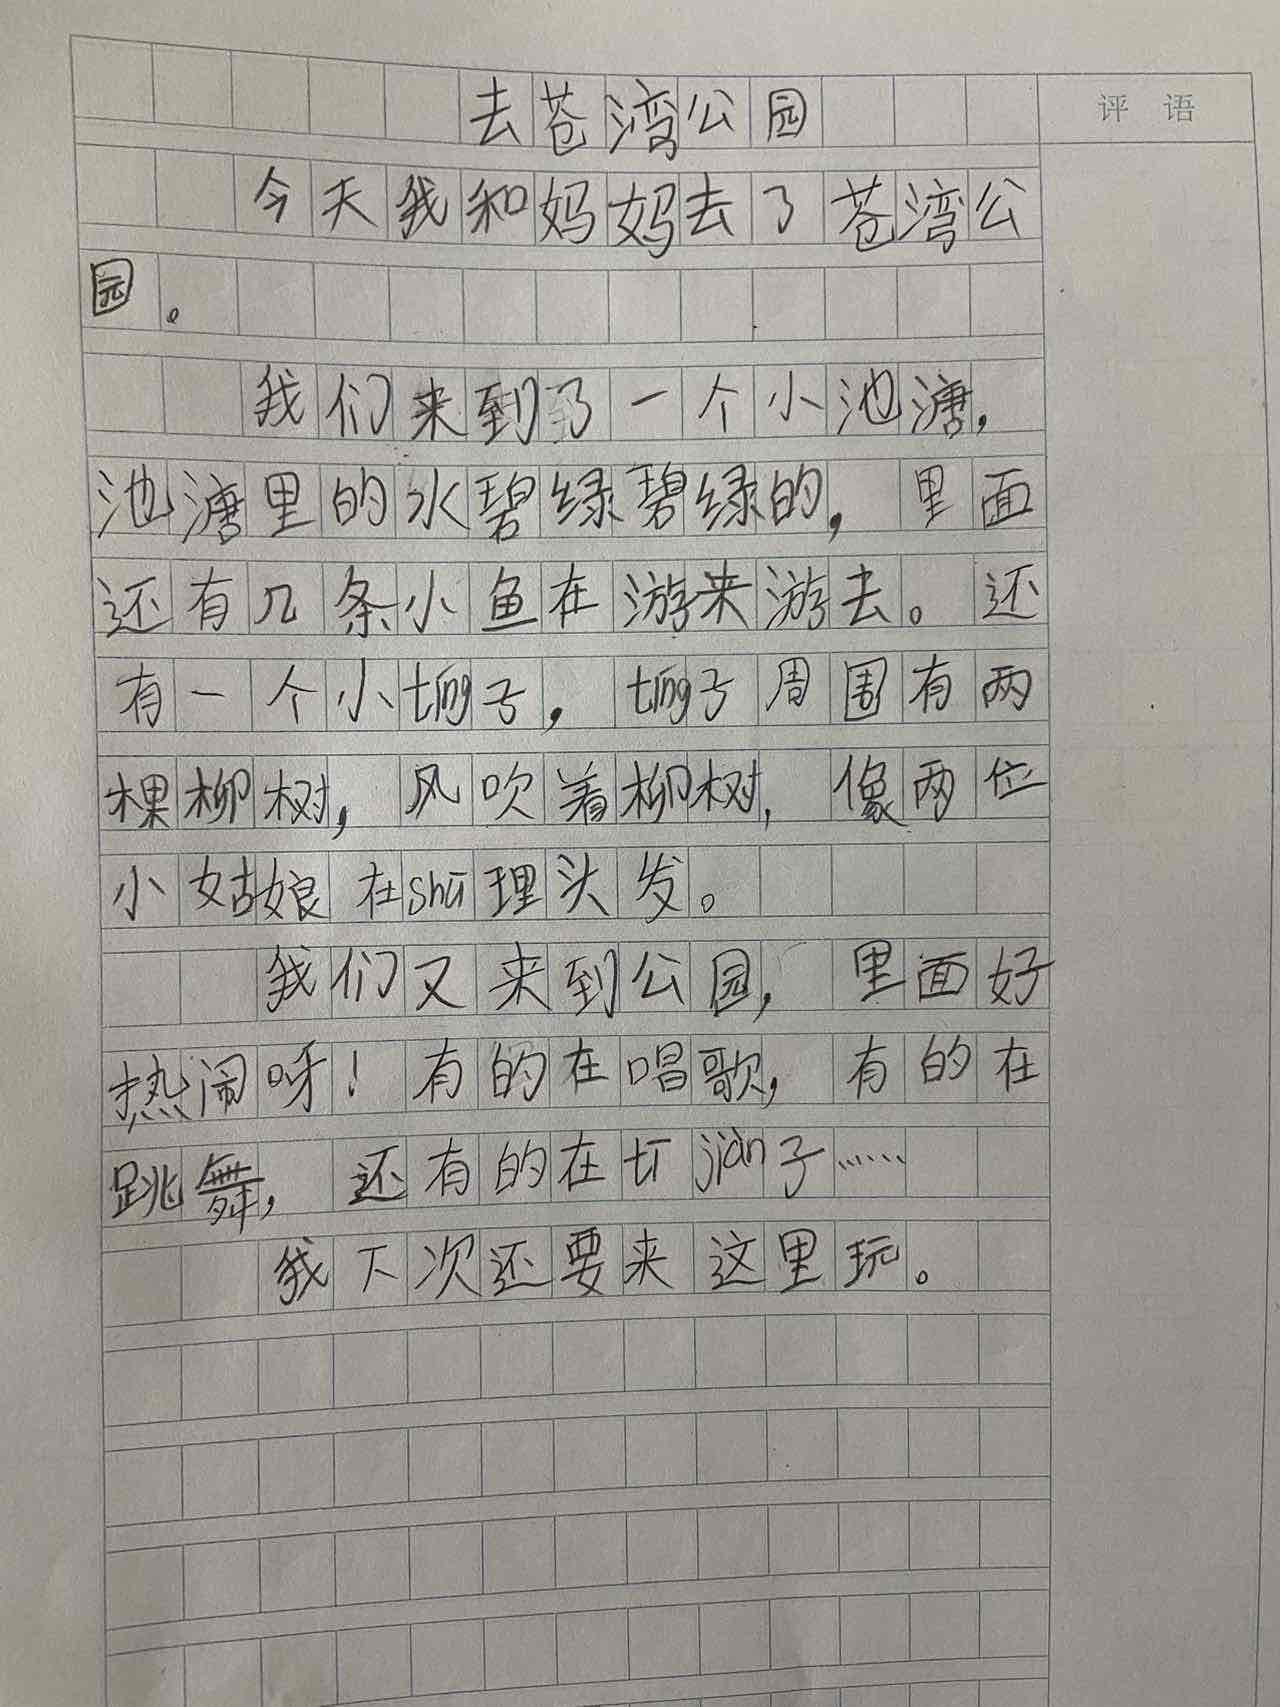 去苍湾公园
评语
今天我和妈妈去了苍湾公
园。
我们来到了一个小池溏，
池溏里的水碧绿碧绿的，里面
还有几条小鱼在游来游去。还
有一个小tíng子，tíng子周围有两
棵柳树，风吹着柳树，像两位
小姑娘在shū理头发。
我们又来到公园，里面好
热闹呀！有的在唱歌，有的在
跳舞，还有的在tī jiàn子……
我下次还要来这里玩。